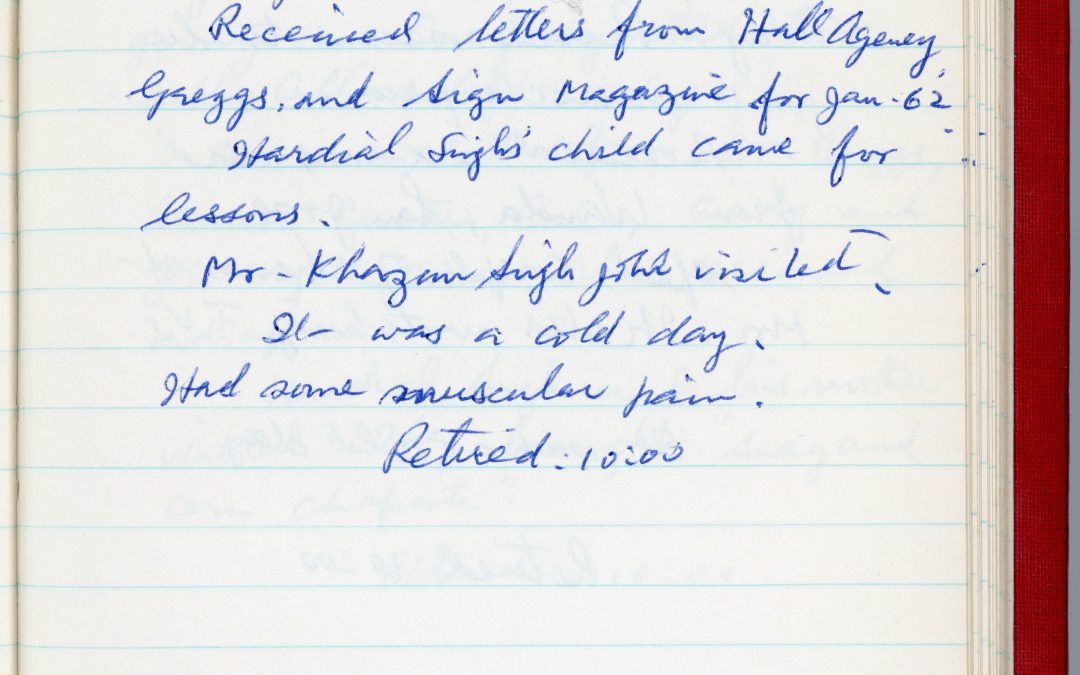 Received letters from Hall Agency,
Greggs, and Sign Magazine for Jan-62
Hardial Singh's child came for
lessons.
Mr - Khazan Singh visited.
It was a cold day.
Had some muscular pain.
Retired: 10:00